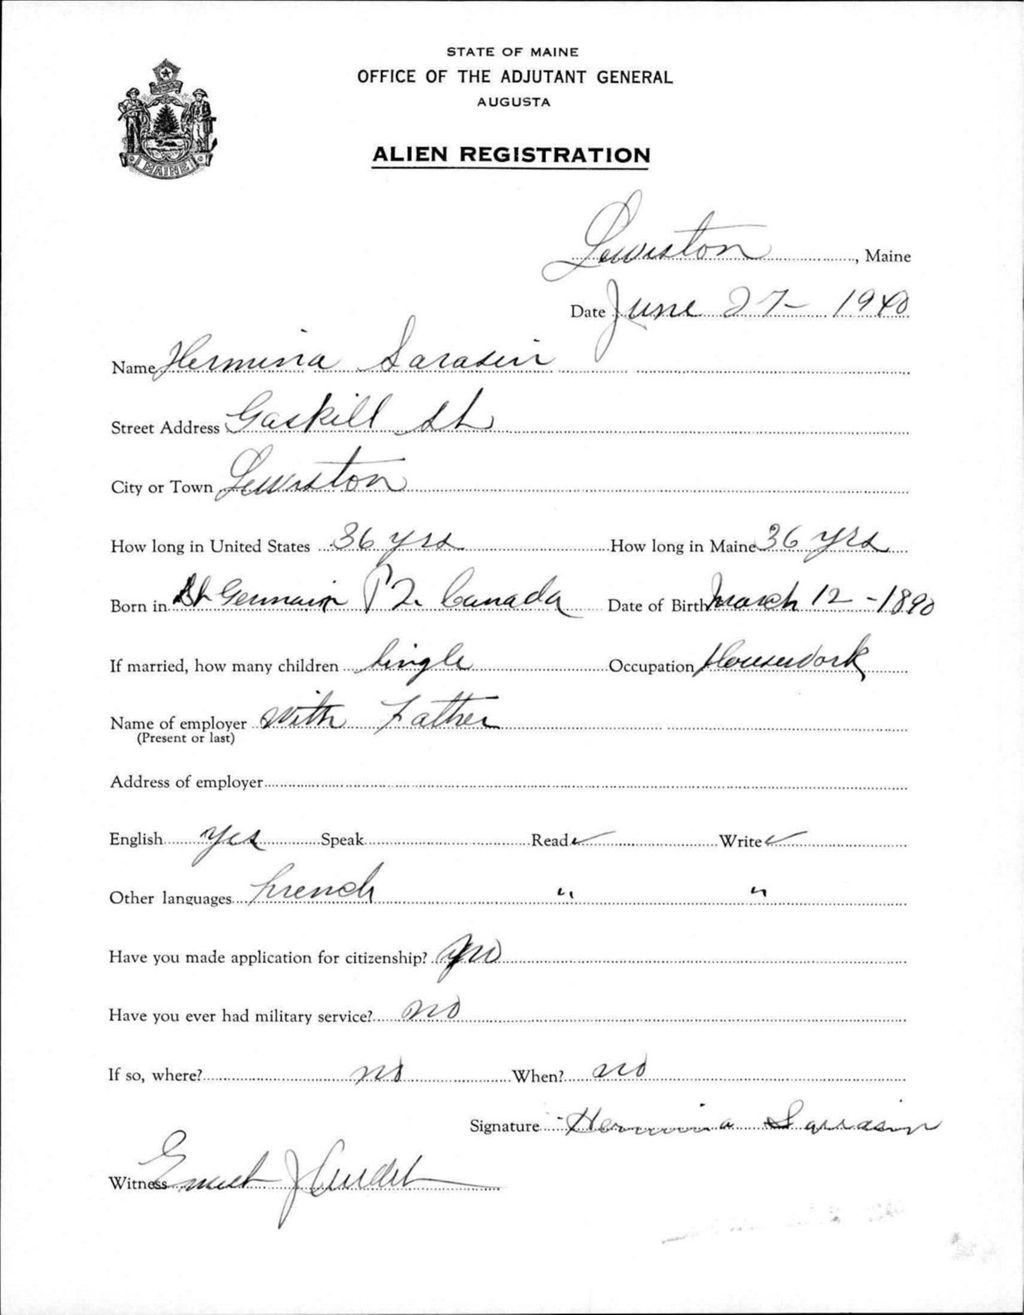 STATE OF MAINE
OFFICE OF THE ADJUTANT GENERAL
AUGUSTA
ALIEN REGISTRATION
MAINE
Lewiston, Maine
Date June 27- 1940
Name Hermina Sarasin
Street Address Gaskill St
City or Town Lewiston
How long in United States 36 yrs How long in Maine 36 yrs
Born in St Germain P Q. Canada Date of Birth March 12 - 1890
If married, how many children Single Occupation Housework
Name of employer With Father
(Present or last)
Address of employer
English yes Speak Read ✓ Write ✓
Other languages French " "
Have you made application for citizenship? no
Have you ever had military service? no
If so, where? no When? no
Signature Hermina Sarrasin
Witness